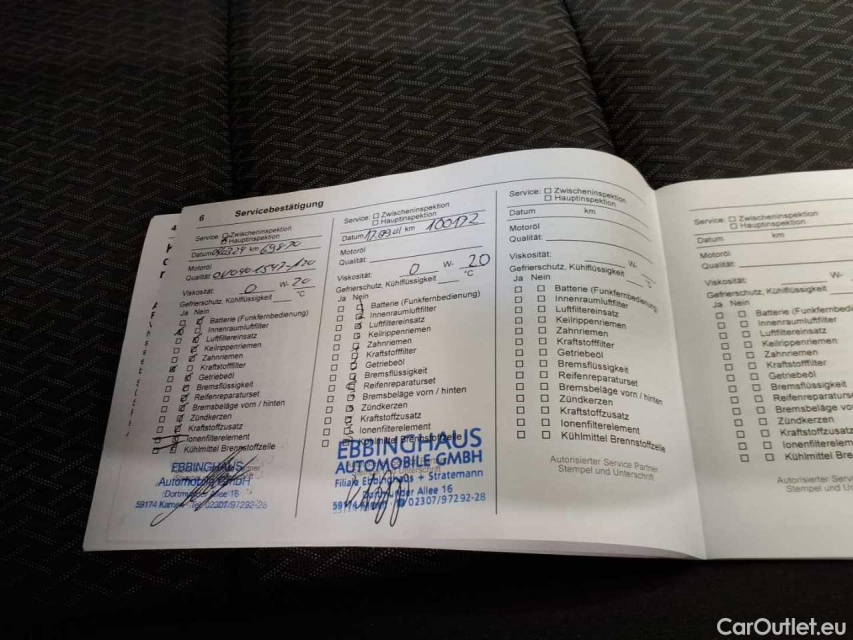 6 Servicebestätigung
Service: Zwischeninspektion
Hauptinspektion
Datum km 69870
Motoröl
Qualität:
Viskosität: 0 W- 20
Gefrierschutz, Kühlflüssigkeit °C
Ja Nein
Batterie (Funkfernbedienung)
Innenraumluftfilter
Luftfiltereinsatz
Keilrippenriemen
Zahnriemen
Kraftstofffilter
Getriebeöl
Bremsflüssigkeit
Reifenreparaturset
Bremsbeläge vorn / hinten
Zündkerzen
Kraftstoffzusatz
Ionenfilterelement
Kühlmittel Brennstoffzelle
EBBINGHAUS
Automobile GmbH
Dortmunder Allee 16
59174 Kamen Tel. 02307/97292-28
Service: Zwischeninspektion
Hauptinspektion
Datum km 100172
Motoröl
Qualität:
Viskosität: 0 W- 20
Gefrierschutz, Kühlflüssigkeit °C
Ja Nein
Batterie (Funkfernbedienung)
Innenraumluftfilter
Luftfiltereinsatz
Keilrippenriemen
Zahnriemen
Kraftstofffilter
Getriebeöl
Bremsflüssigkeit
Reifenreparaturset
Bremsbeläge vorn / hinten
Zündkerzen
Kraftstoffzusatz
Ionenfilterelement
Kühlmittel Brennstoffzelle
EBBINGHAUS
AUTOMOBILE GMBH
Filiale Ebbinghaus + Stratemann
Dortmunder Allee 16
59174 Kamen 02307/97292-28
Service: Zwischeninspektion
Hauptinspektion
Datum km
Motoröl
Qualität:
Viskosität: W-
Gefrierschutz, Kühlflüssigkeit °C
Ja Nein
Batterie (Funkfernbedienung)
Innenraumluftfilter
Luftfiltereinsatz
Keilrippenriemen
Zahnriemen
Kraftstofffilter
Getriebeöl
Bremsflüssigkeit
Reifenreparaturset
Bremsbeläge vorn / hinten
Zündkerzen
Kraftstoffzusatz
Ionenfilterelement
Kühlmittel Brennstoffzelle
Autorisierter Service Partner
Stempel und Unterschrift
Service: Zwischeninspektion
Hauptinspektion
Datum km
Motoröl
Qualität:
Viskosität: W-
Gefrierschutz, Kühlflüssigkeit
Ja Nein
Batterie (Funkfernbedienung)
Innenraumluftfilter
Luftfiltereinsatz
Keilrippenriemen
Zahnriemen
Kraftstofffilter
Getriebeöl
Bremsflüssigkeit
Reifenreparaturse
Bremsbeläge vo
Zündkerzen
Kraftstoffzusatz
Ionenfilterelem
Kühlmittel Bre
Autorisierter Serv
Stempel und Un
CarOutlet.eu